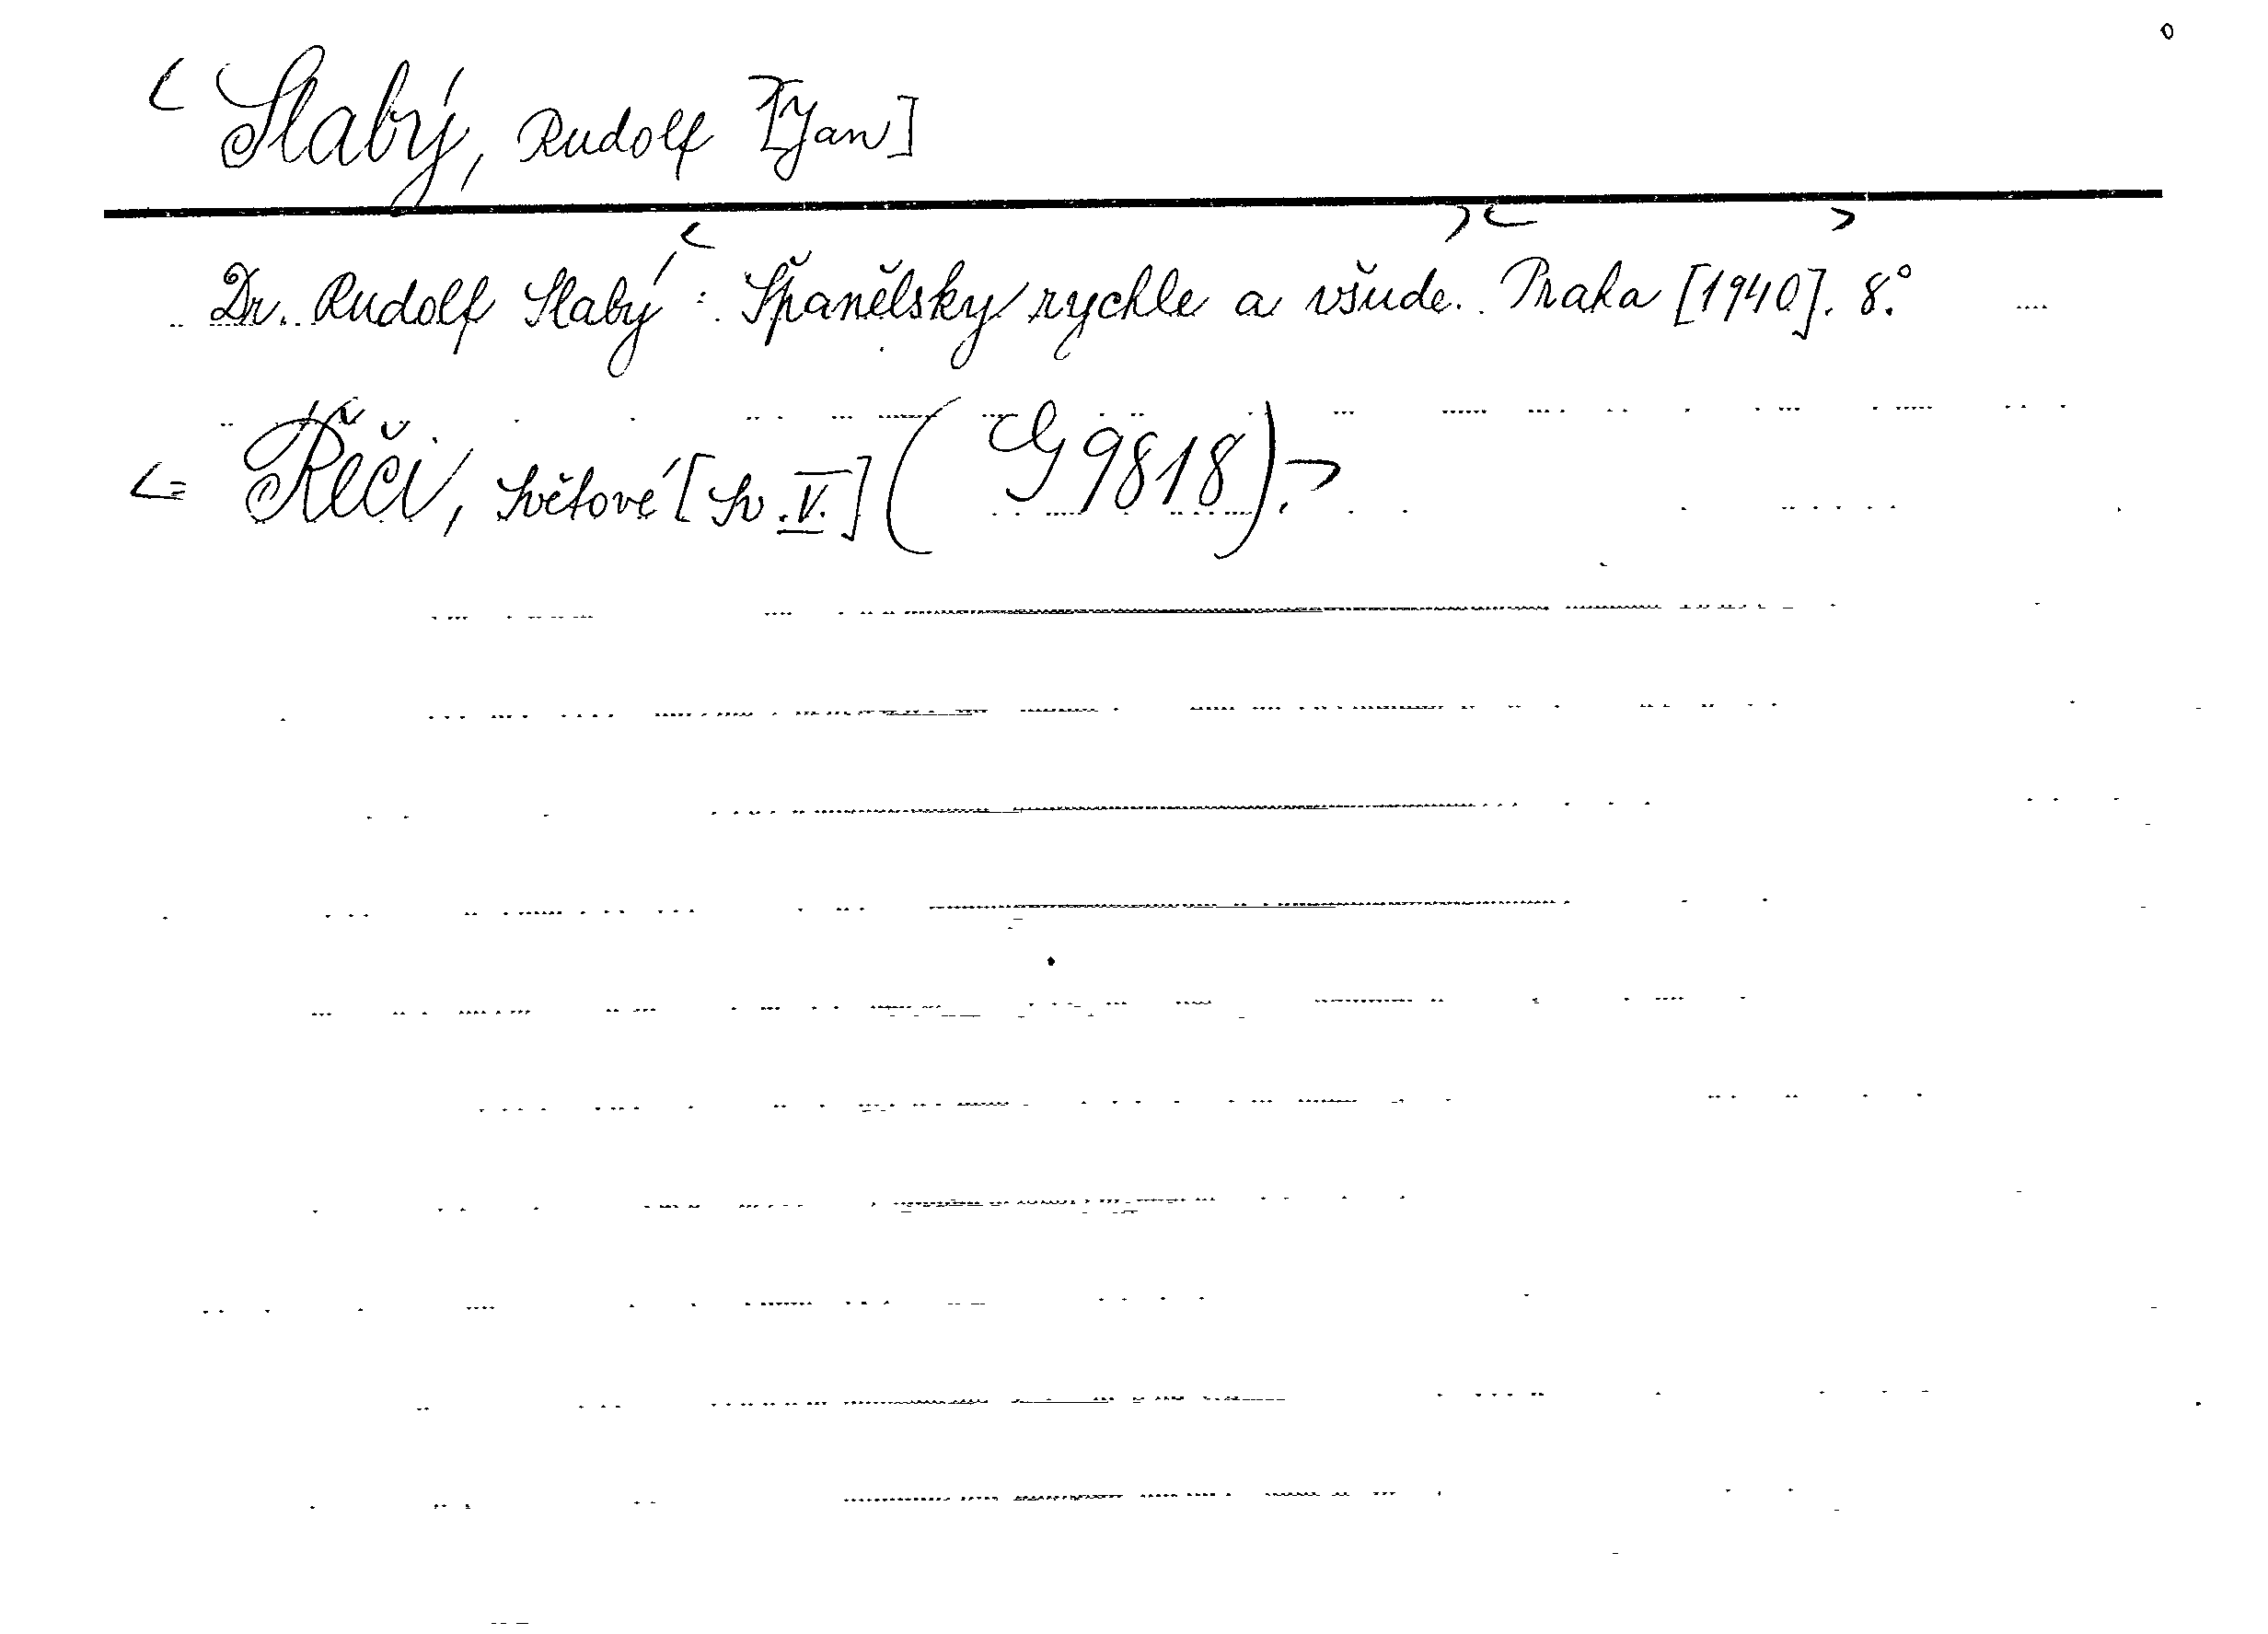 < Slabý, Rudolf [Jan]
Dr. Rudolf Slabý : <Španělsky rychle a všude.> <Praha [1940].> 8.°
<= Řeči, světové [Sv. V.] ( G 9818 ).>